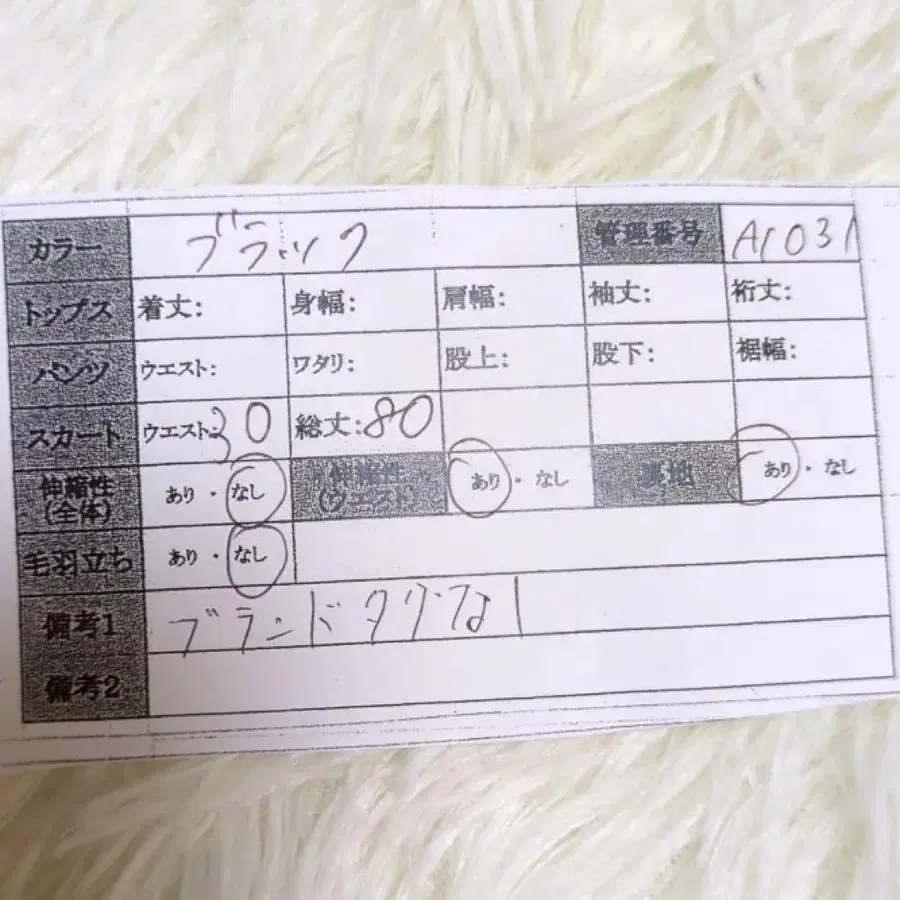 カラー ブラック 管理番号 A1031
トップス 着丈: 身幅: 肩幅: 袖丈: 裄丈:
パンツ ウエスト: ワタリ: 股上: 股下: 裾幅:
スカート ウエスト:30 総丈:80
伸縮性(全体) あり・なし 伸縮性(ウエスト) あり・なし 裏地 あり・なし
毛羽立ち あり・なし
備考1 ブランドタグなし
備考2